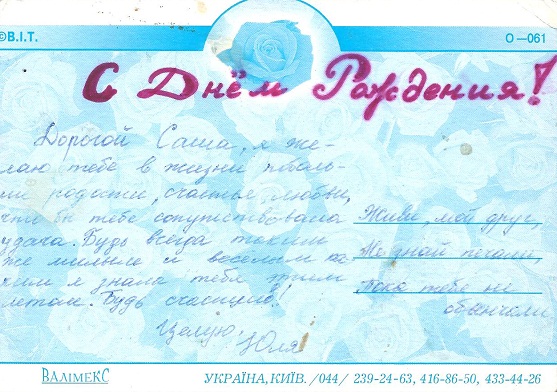 ©B.I.T.
О—061
С Днём Рождения!
Дорогой Саша, я же-
лаю тебе в жизни поболь-
ше радости, счастья, любви,
что б тебе сопутствовала
удача. Будь всегда таким
же милым и веселым ка-
ким я знала тебя этим
летом. Будь счастлив!
Целую, Юля
Живи, мой друг,
Не знай печали,
Пока тебя не
обвенчали
ВАЛІМЕКС
УКРАЇНА, КИЇВ. /044/ 239-24-63, 416-86-50, 433-44-26